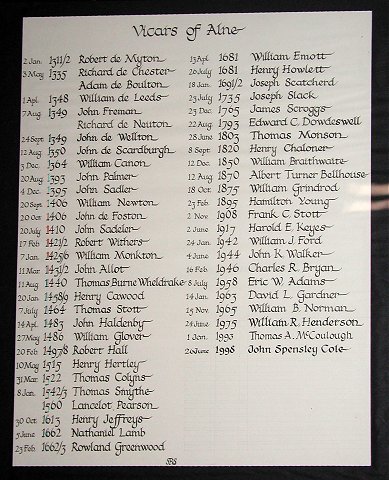 Vicars of Alne
2 Jan. 1311/2 Robert de Myton
3 May 1335 Richard de Chester
Adam de Boulton
1 Apl. 1348 William de Leeds
7 Aug 1349 John Freman
Richard de Neuton
24 Sept 1349 John de Wellton
12 Aug 1350 John de Scardburgh
3 Dec. 1364 William Canon
20 Aug 1393 John Palmer
4 Dec. 1395 John Sadler
20 Sept 1406 William Newton
20 Oct 1406 John de Foston
20 July 1410 John Sadeler
17 Feb 1421/2 Robert Withers
7 Jan. 1425/6 William Monkton
11 Mar 1431/2 John Allot
11 Aug 1440 Thomas Burne Wheldrake
20 Jan 1458/9 Henry Cawood
7 July 1464 Thomas Stott
14 Apl. 1483 John Haldenby
27 May 1486 William Glover
20 Feb 1497/8 Robert Hall
10 May 1515 Henry Hertley
31 Mar 1522 Thomas Colyns
8 Jan. 1542/3 Thomas Smythe
1560 Lancelot Pearson
30 Oct 1613 Henry Jeffreys
5 June 1662 Nathaniel Lamb
23 Feb 1662/3 Rowland Greenwood
13 Apl. 1681 William Emott
26 July 1681 Henry Howlett
18 Jan 1691/2 Joseph Scatcherd
23 July 1735 Joseph Slack
23 Dec 1765 James Scroggs
22 Aug 1793 Edward C. Dowdeswell
28 June 1803 Thomas Monson
8 Sept 1820 Henry Chaloner
12 Dec. 1850 William Braithwaite
12 Aug 1870 Albert Turner Bellhouse
18 Oct 1875 William Grindrod
23 Feb 1895 Hamilton Young
2 Nov. 1908 Frank C. Stott
2 June 1917 Harold E. Keyes
24 Jan 1942 William J. Ford
4 June 1944 John K. Walker
16 Feb 1946 Charles R. Bryan
8 July 1958 Eric W. Adams
14 Jan. 1963 David L. Gardner
15 Nov. 1965 William B. Norman
24 June 1975 William R. Henderson
1 Jan. 1993 Thomas A. McCoulough
26 June 1998 John Spensley Cole